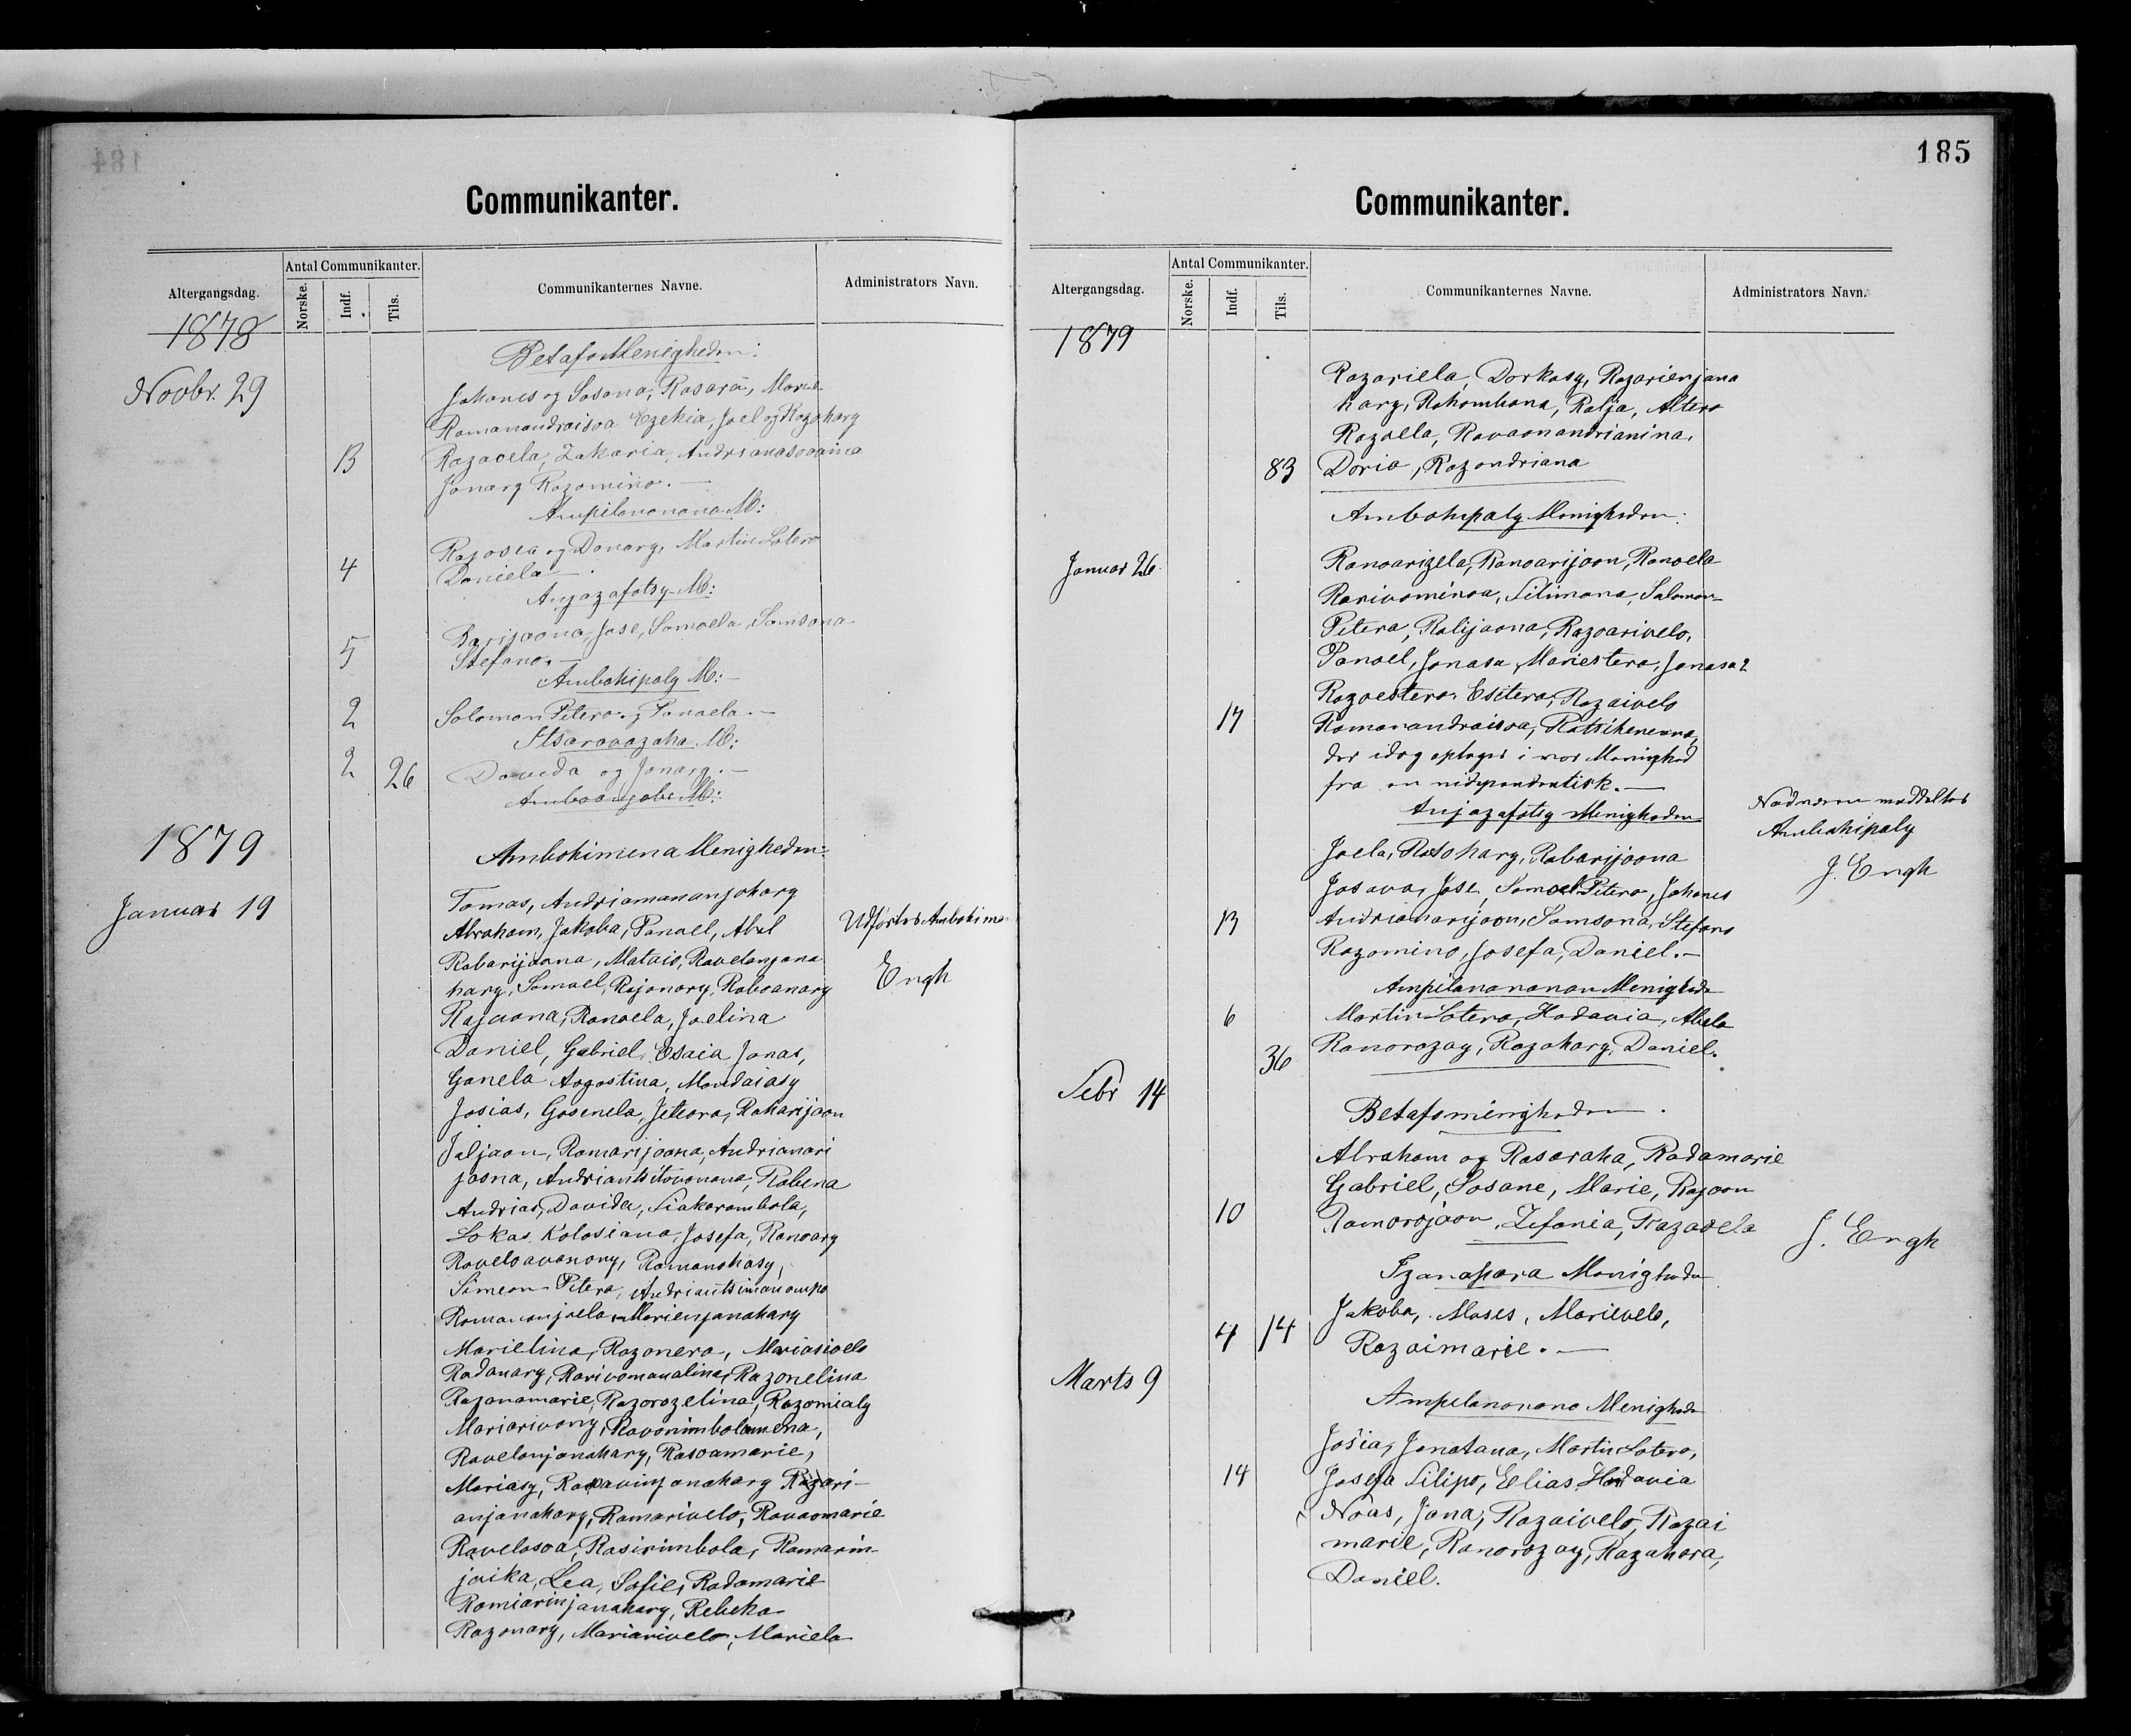 184
Communikanter.
Altergangsdag.
Antal Communikanter.
Norske.
Indf.
Tils.
Communikanternes Navne.
Administrators Navn.
1878
Betafo Menigheden:
Novbr. 29
Johanes og Sosana, Rasara, Marie
Ramanandraisoa Ezekia, Joel og Razohary
13 Razavela, Zakaria, Andrianasoavina
Jonary Razomino. —
Ampilanonana M:
Rajosea og Donary, Martin Lotera
4 Daniela — .
Anjazafotsy M:
Barijaona, Jose, Samoela, Samsona
5 Stefano. —
Ambohipaly M: —
2 Solomon Petera og Panoela. —
Itsaravazaha M:
2 26 Davida og Jonary. —
Amboanjobe M:
1879
Ambohimena Menigheden:
Januar 19
Tomas, Andriamananjohary
Abraham, Jakoba, Panoel, Abel
Udførtes Ambohime
Rabarijaona, Mataio, Ravelonjana
hary, Samoel, Rajonary, Raboanary
Engh
Rajaona, Ranoela, Joelina
Daniel, Gabriel, Esaia Jonas,
Ganela Aogostina, Mandaiasy
Josias, Gosenela, Jeteora, Raharijaon
Jaljaon, Ramarijaona, Andrianari
jaona, Andriantsitovonana, Rabena
Andrias, Davida, Siakarambola,
Lokas, Kolosiana, Josefa, Ranoary
Raveloavanony, Ramanohasy,
Simeon Petera, Andriantsimanampo
Ramananjoela, Marienjanahary
Marielina, Razanera, Mariasivelo
Radanary, Rarivomanalina, Razonelina
Razanamarie, Razorozelina, Razomialy
Mariarivony, Ravonimbolamena,
Ravelonjanahary, Rasoamarie,
Mariasy, Ravavinjanahary Razari-
anjanahary, Ramarivelo, Ravaomarie
Ravelosoa, Rasirimbola, Ramarin-
jaika, Lea, Sofie, Radamarie
Ramiarinjanahary, Rebeka
Razonary, Mariarivelo, Mariela
185
Communikanter.
Altergangsdag.
Antal Communikanter.
Norske.
Indf.
Tils.
Communikanternes Navne.
Administrators Navn.
1879
Razariela, Dorkasy, Razarienjana
hary, Rahombana, Ralja, Altera
Razoela, Ravaonandrianina,
83 Doria, Razandriana
Ambohipaly Menigheden:
Januar 26
Ranoarizela, Ranoarijaon, Ranoela
Rarivominoa, Silimana, Salomon
Petera, Ralijaona, Razoarivelo,
Panoel, Jonasa, Mariestera, Jonasa 2
Razoestera, Esitera, Razaivelo
17 Ramanandraisoa, Ratsihenena,
der idag optages i vor Menighed
fra en independentisk. —
Anjazafotsy Menigheden
Nadveren meddeltes
Ambohipaly
Joela, Rasohary, Rabarijaona
J. Engh
Josava, Jose, Samoel Petera, Johanes
13 Andrianarijaon, Samsona, Stefano
Razomino, Josefa, Daniel. —
Ampilanonanan Menighede
6 Martin Lotera, Hodavia, Abela
Ranorozay, Razohary, Daniel.
36
Febr 14
Betafomenigheden.
Abraham og Rasaraha, Radamarie
Gabriel, Sosane, Marie, Rajaon
10 Ramorojaon, Zefania, Razavela
J. Engh
Tzanapara Menigheden
Jakoba, Moses, Marievelo,
4 14 Razaimarie. —
Marts 9
Ampilanonana Menighede
Josia, Jonatana, Martin Lotera,
14 Josefa Filipo, Elias, Hodavia
Noas, Jona, Razaivelo, Razai
marie, Ranorozay, Razahara,
Daniel.